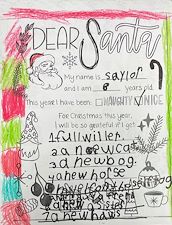 DEAR Santa
My name is saylor
and I am 8 years old.
This year I have been: NAUGHTY NICE
For Christmas this year,
I will be so grateful if I get
1 full willer.
2 a newcat
3 a newbog.
4 a newhorse
7 a newhaws